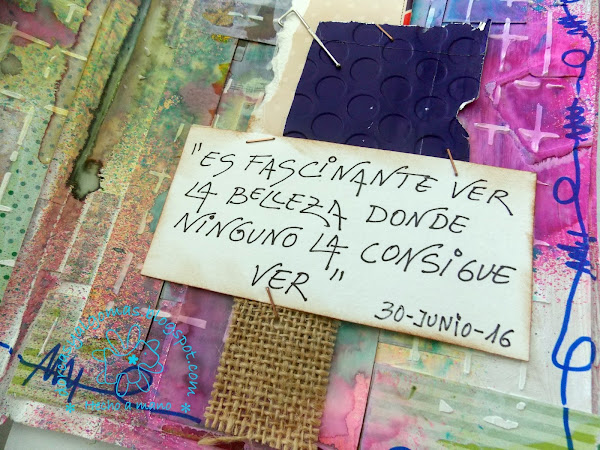 "ES FASCINANTE VER
LA BELLEZA DONDE
NINGUNO LA CONSIGUE
VER"
30-JUNIO-16
Hecho a mano